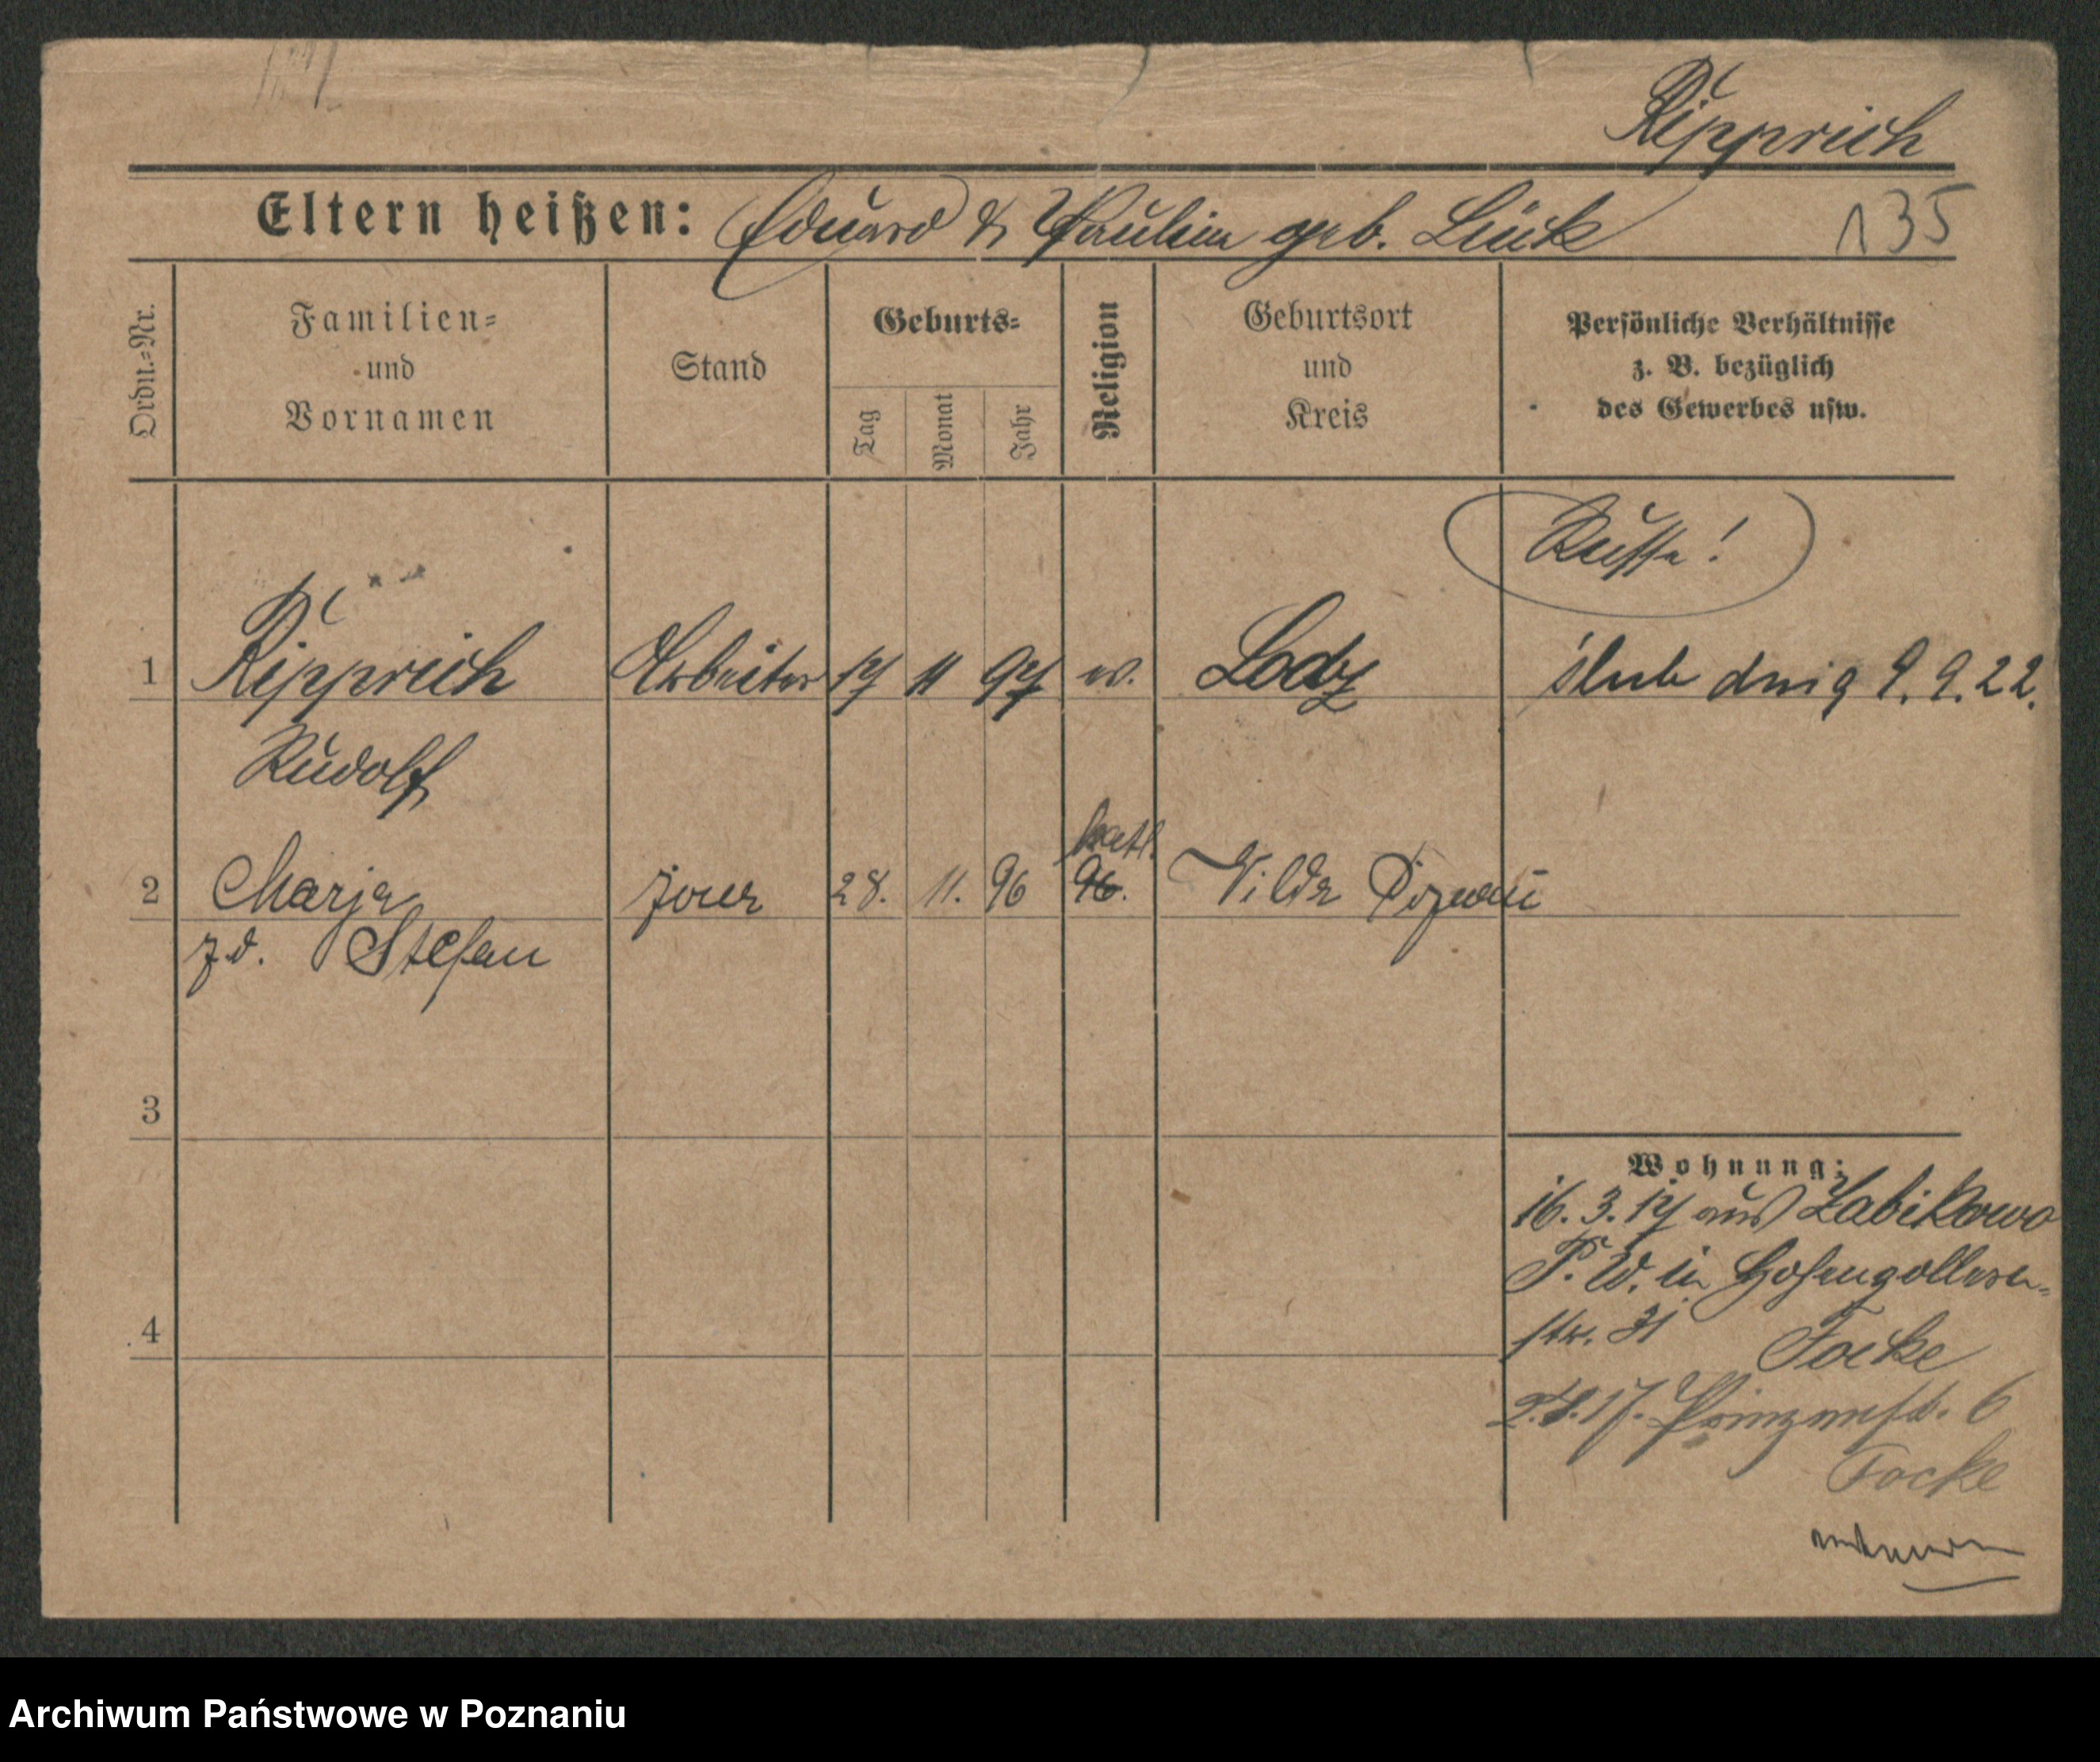 Ripprich
Eltern heißen: Eduard & Paulin geb. Lück 135
Ordn.=Nr.
Familien=
und
Vornamen
Stand
Geburts=
Tag
Monat
Jahr
Religion
Geburtsort
und
Kreis
Persönliche Verhältnisse
z. B. bezüglich
des Gewerbes usw.
Russe!
1 Ripprich Arbeiter 17 11 97 ev. Lodz ślub dnia 9.9.22.
Rudolf
kath.
2 Marja żona 28. 11. 96 96. Wilda Poznań
z d. Stefan
3
Wohnung:
16.3.17 aus Zabikowo
P. W. in Hohenzollern-
4
str. 31 Focke
2.8.17. Prinzenstr. 6
Focke
Archiwum Państwowe w Poznaniu